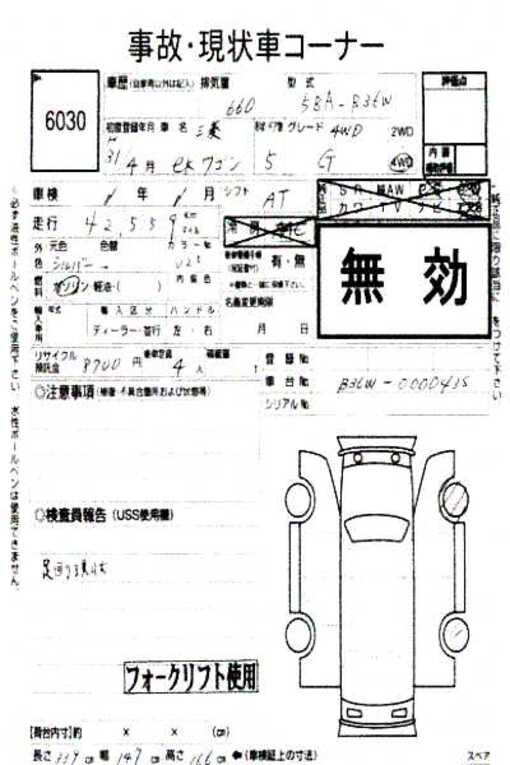 事故・現状車コーナー
6030
車歴 (自家用以外は記入) 排気量 型式
660 5BA-B36W
評価点
初度登録年月 車名 三菱 グレード 4WD 2WD
31年 4月 eKワゴン 5 G 4WD
内装
車検 / 年 / 月 シフト AT
走行 42,559 km
冷房
外色 元色 色替 カラーNo
シルバー U25
有・無
無効
燃料 ガソリン・軽油・( ) 内装色
名義変更期限
輸入車用 年式 輸入区分 ハンドル
ディーラー・並行 左・右
月 日
リサイクル預託金 8700円 乗車定員 4人 積載量 t
登録No
車台No B36W-0000435
シリアルNo
◎注意事項 (修復・不具合箇所および状態等)
◎検査員報告 (USS使用欄)
足回り現状
フォークリフト使用
【荷台内寸】約 × × (cm)
長さ 339 cm 幅 147 cm 高さ 166 cm ←(車検証上の寸法)
スペア
必ず油性ボールペンをご使用下さい 水性ボールペンは使用できません。